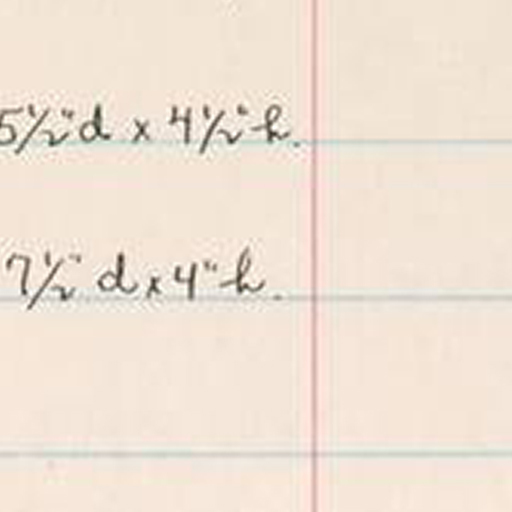 5½"d x 4½"h.
7½" d x 4"h.